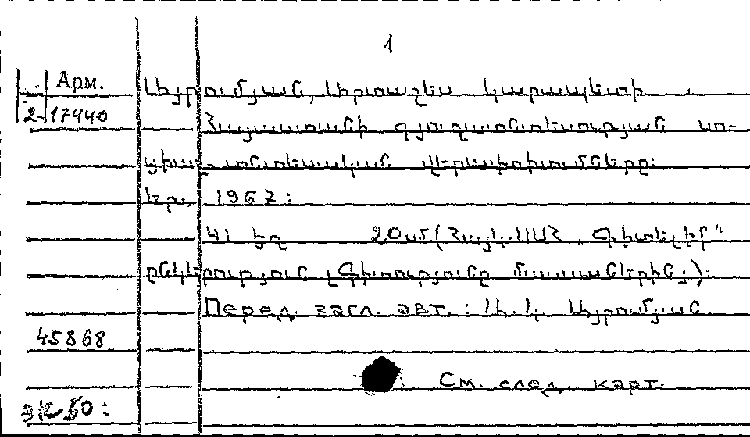 1
Арм.
2-17440
Այրումյան, Արտաշես Կարապետի
Հայաստանի գյուղատնտեսության
տնտեսական վերափոխումները:
Եր., 1967:
41 էջ 20սմ (Հայկ. ՍՍՀ „Գիտելիք“
ընկերություն („Գիտությունը մասսաներին“):
Перед загл. авт.: Ա. Կ. Այրումյան
45868
См. след. карт.